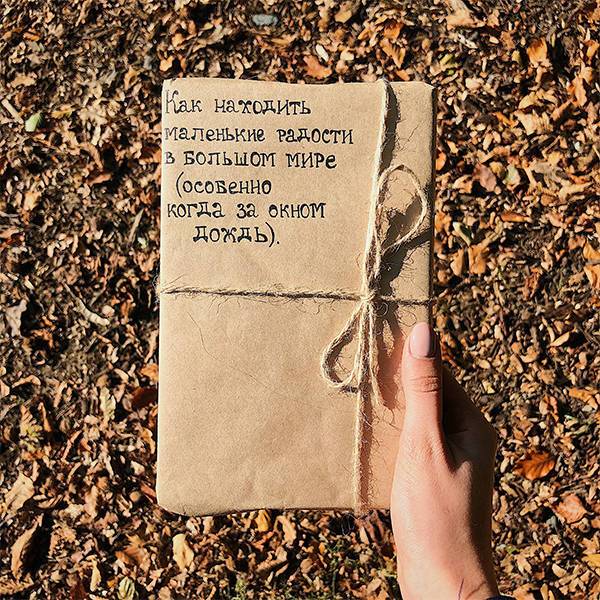 Как находить
маленькие радости
в большом мире
(особенно
когда за окном
дождь).